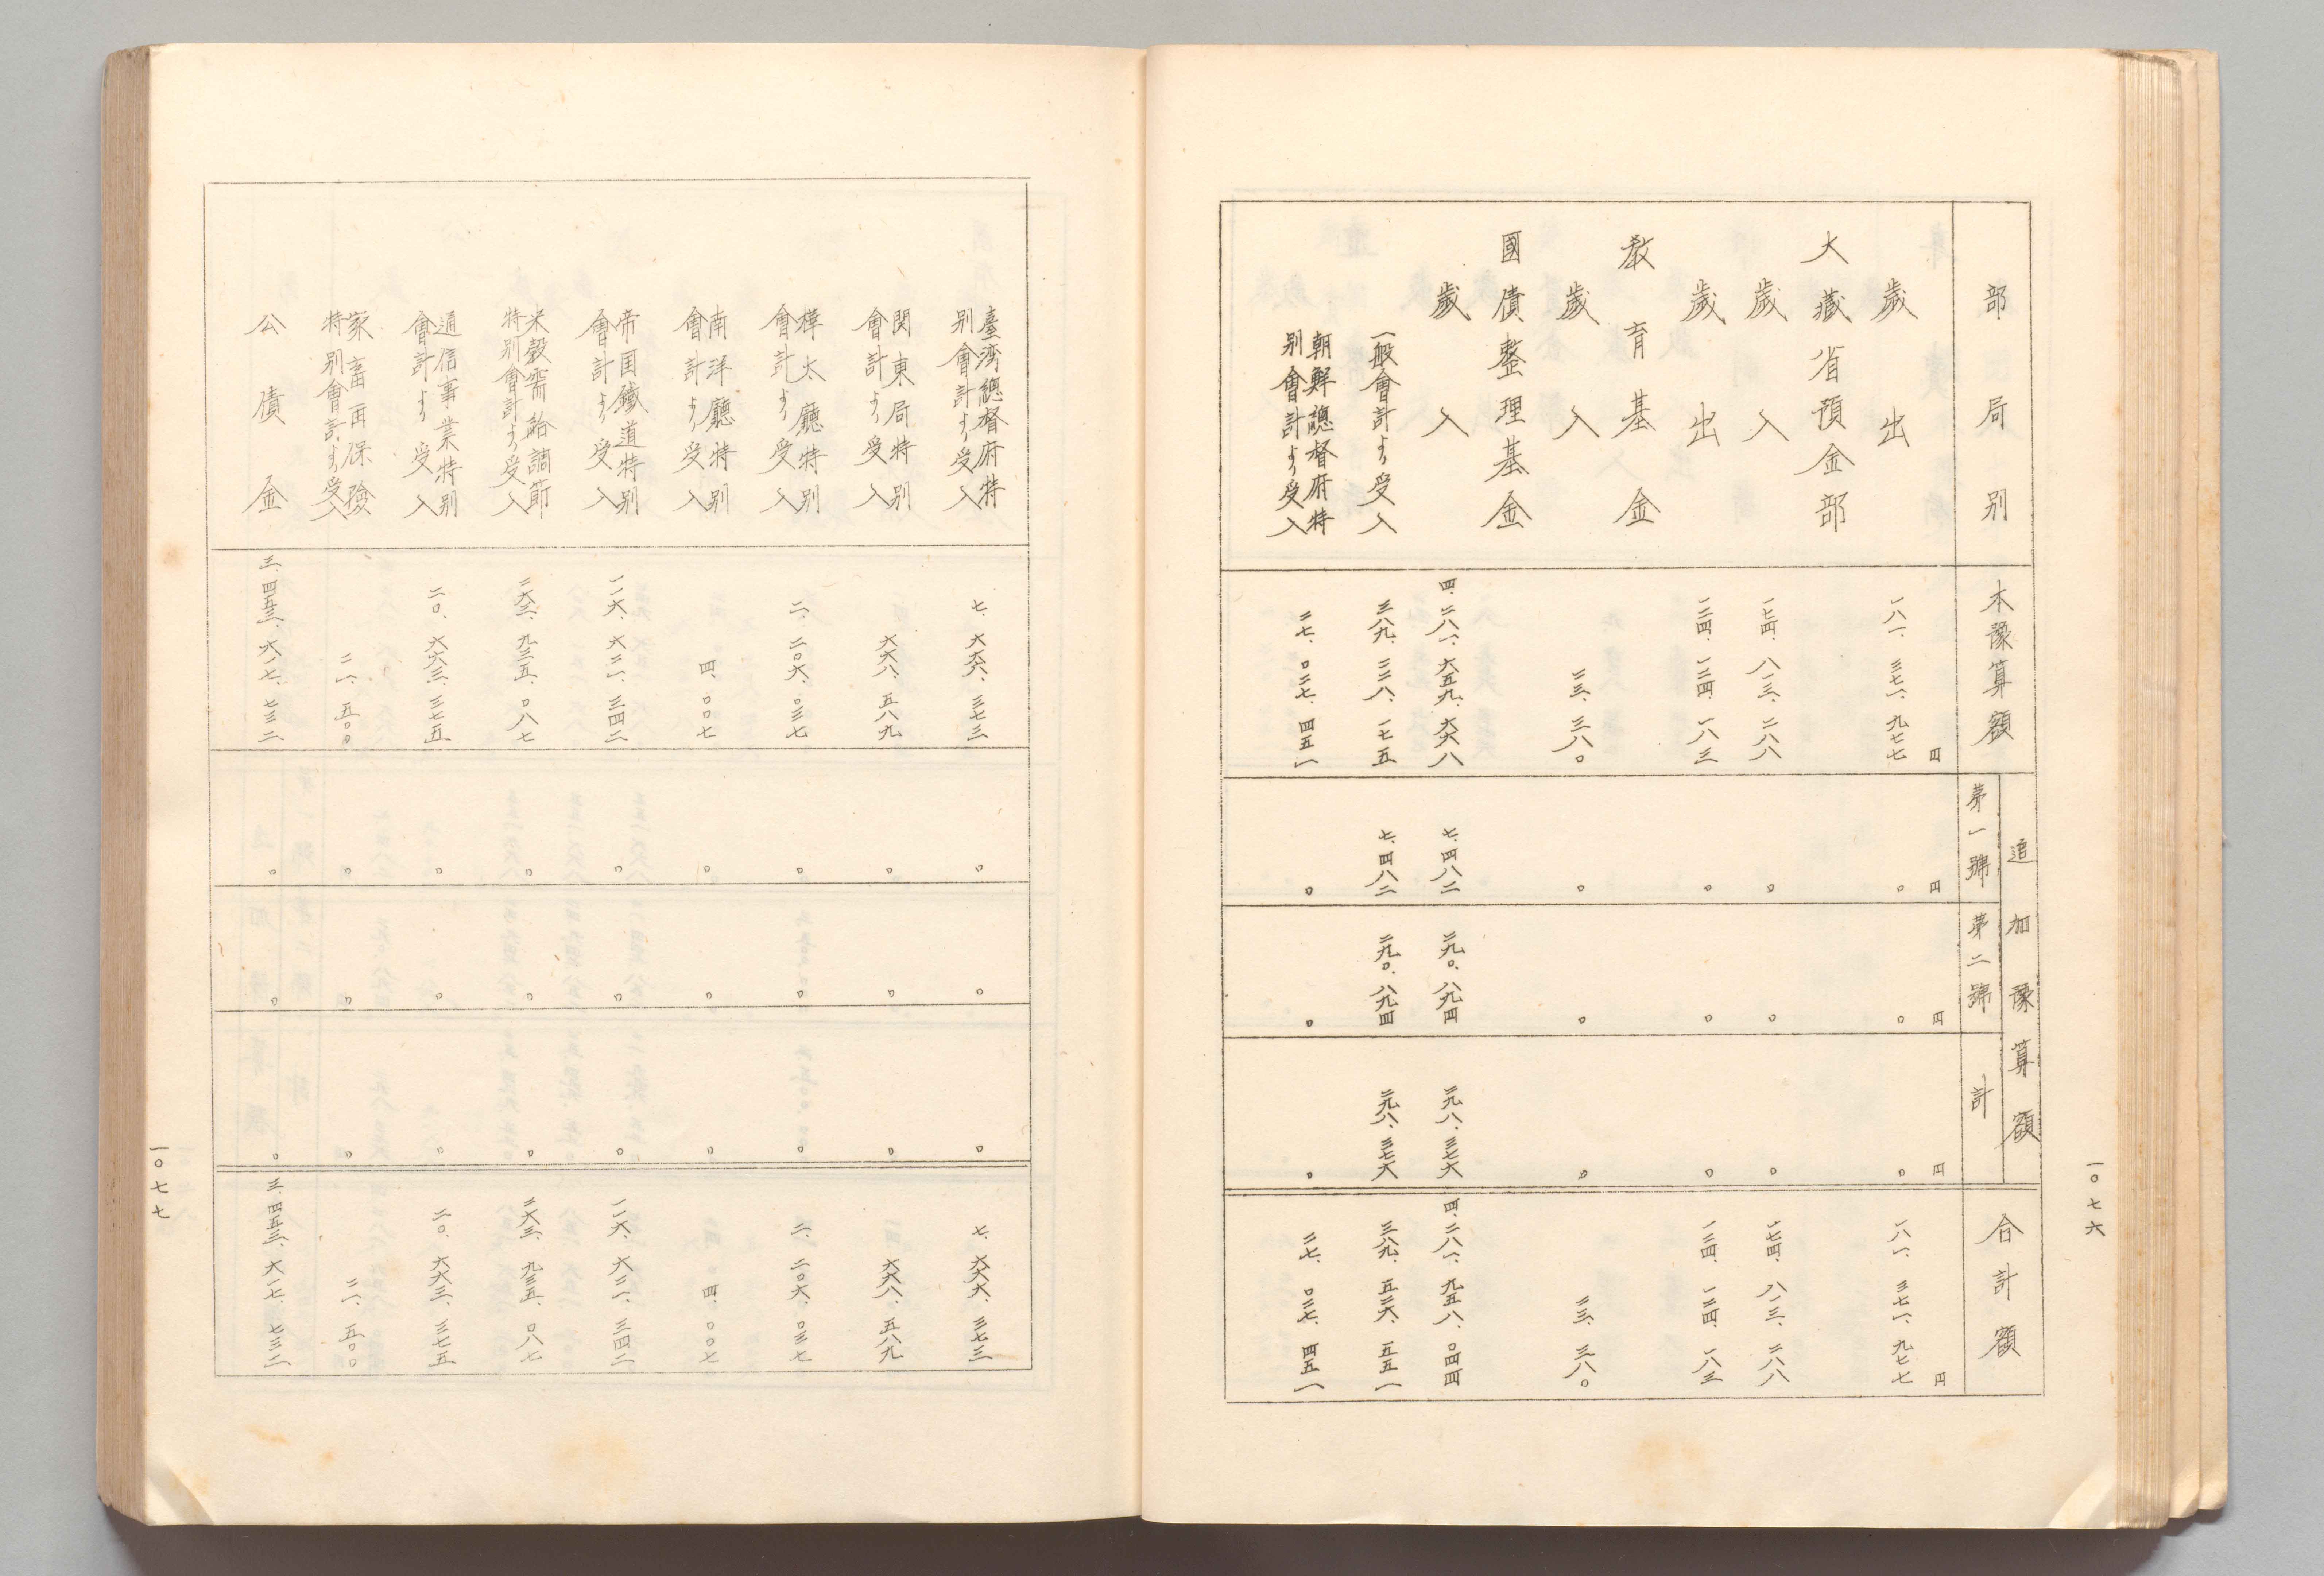 一〇七六
部局別
本豫算額
追加豫算額
第一號
第二號
計
合計額
円
円
円
円
円
歲出
一八一、三七一、九七七
〇
〇
〇
一八一、三七一、九七七
大藏省預金部
歲入
一七四、八一三、二八八
〇
〇
〇
一七四、八一三、二八八
歲出
一二四、一二四、一八三
〇
〇
〇
一二四、一二四、一八三
教育基金
歲入
二三、三八〇
〇
〇
〇
二三、三八〇
國債整理基金
歲入
四、二八一、六五九、六六八
七、四八二
二九〇、八九四
二九八、三七六
四、二八一、九五八、〇四四
一般會計より受入
三八九、二二八、一七五
七、四八二
二九〇、八九四
二九八、三七六
三八九、五二六、五五一
朝鮮總督府特
別會計より受入
二七、〇二七、四五一
〇
〇
〇
二七、〇二七、四五一
臺湾總督府特
別會計より受入
七、六六六、三七三
〇
〇
〇
七、六六六、三七三
関東局特別
會計より受入
六六八、五八九
〇
〇
〇
六六八、五八九
樺太廳特別
會計より受入
二、二〇六、〇三七
〇
〇
〇
二、二〇六、〇三七
南洋廳特別
會計より受入
四、〇〇七
〇
〇
〇
四、〇〇七
帝国鐵道特別
會計より受入
一一六、六二一、三四二
〇
〇
〇
一一六、六二一、三四二
米穀需給調節
特別會計より受入
二六三、九三五、〇八七
〇
〇
〇
二六三、九三五、〇八七
通信事業特別
會計より受入
二〇、六六三、三七五
〇
〇
〇
二〇、六六三、三七五
家畜再保險
特別會計より受入
二一、五〇〇
〇
〇
〇
二一、五〇〇
公債金
三、四五三、六一七、七三二
〇
〇
〇
三、四五三、六一七、七三二
一〇七七